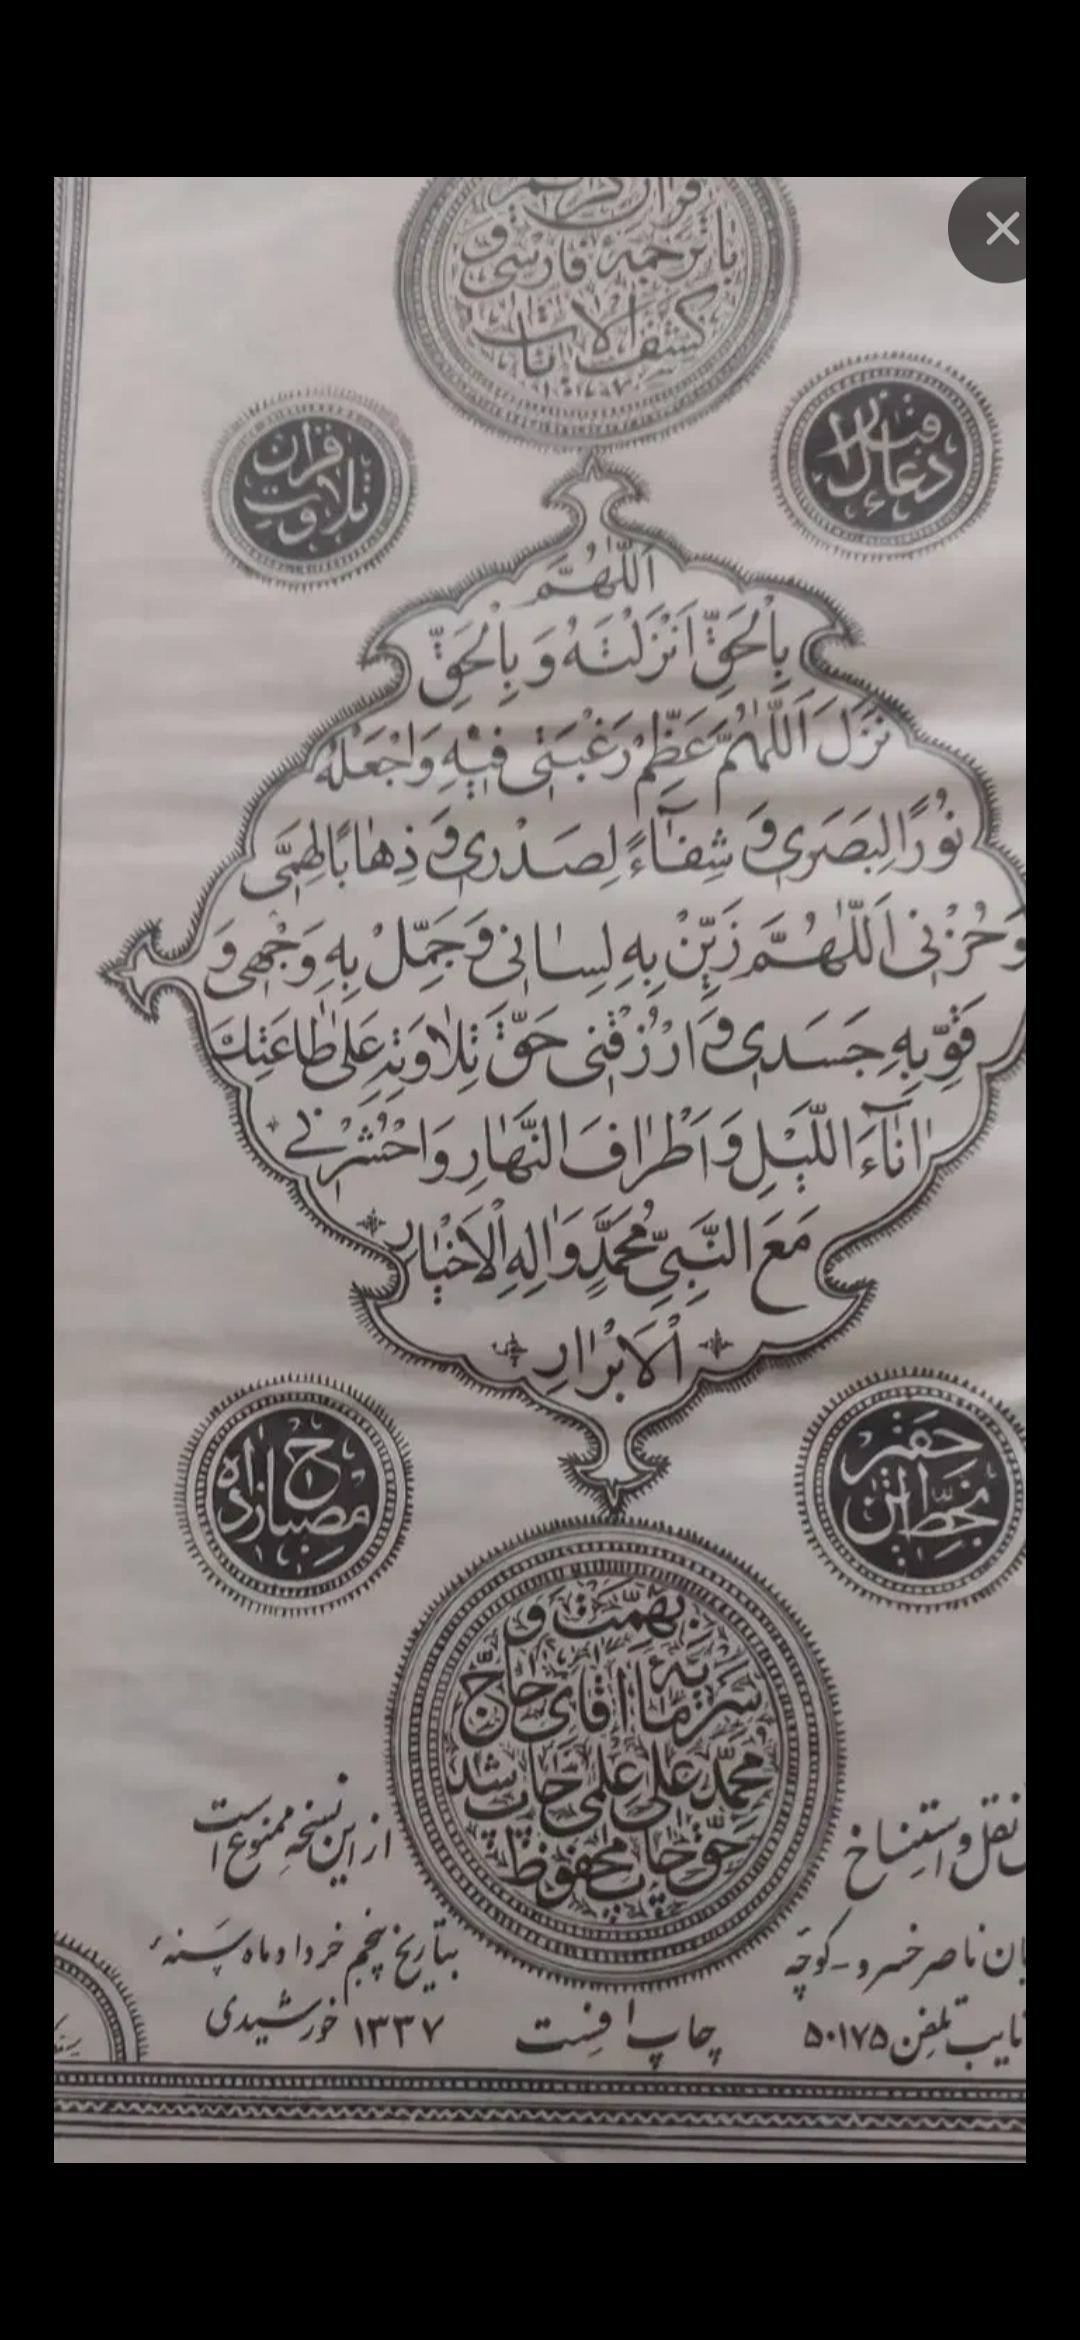 قرآن کریم
با ترجمهٔ فارسی و
کشف الآیات
دعاء
تلاوت قرآن
اَللّٰهُمَّ
بِالْحَقِّ اَنْزَلْتَهُ وَ بِالْحَقِّ
نَزَلَ اَللّٰهُمَّ عَظِّمْ رَغْبَتی فیهِ وَاجْعَلْهُ
نُورًا لِبَصَری وَ شِفٰاءً لِصَدْری وَ ذِهٰابًا لِهَمّی
وَحُزْنی اَللّٰهُمَّ زَیِّنْ بِهِ لِسٰانی وَ جَمِّلْ بِهِ وَجْهی وَ
قَوِّ بِهِ جَسَدی وَ ارْزُقْنی حَقَّ تِلٰاوَتِهِ عَلٰی طٰاعَتِكَ
اٰنٰاءَ اللَّیْلِ وَ اَطْرٰافَ النَّهٰارِ وَاحْشُرْنی
مَعَ النَّبِیِّ مُحَمَّدٍ وَاٰلِهِ الْاَخْیٰارِ
الْاَبْرٰارِ
بخط
ح مصباح زاده
بهمّت و
سرمایهٔ آقای حاجّ
محمّد علی علمی چاپ شد
حقّ چاپ محفوظ
نقل و استنساخ
از این نسخه ممنوع است
ناصر خسرو - کوچه
بتاریخ پنجم خرداد ماه سنهٔ
تلفن ۵۰۱۷۵
چاپ افست
۱۳۳۷ خورشیدی